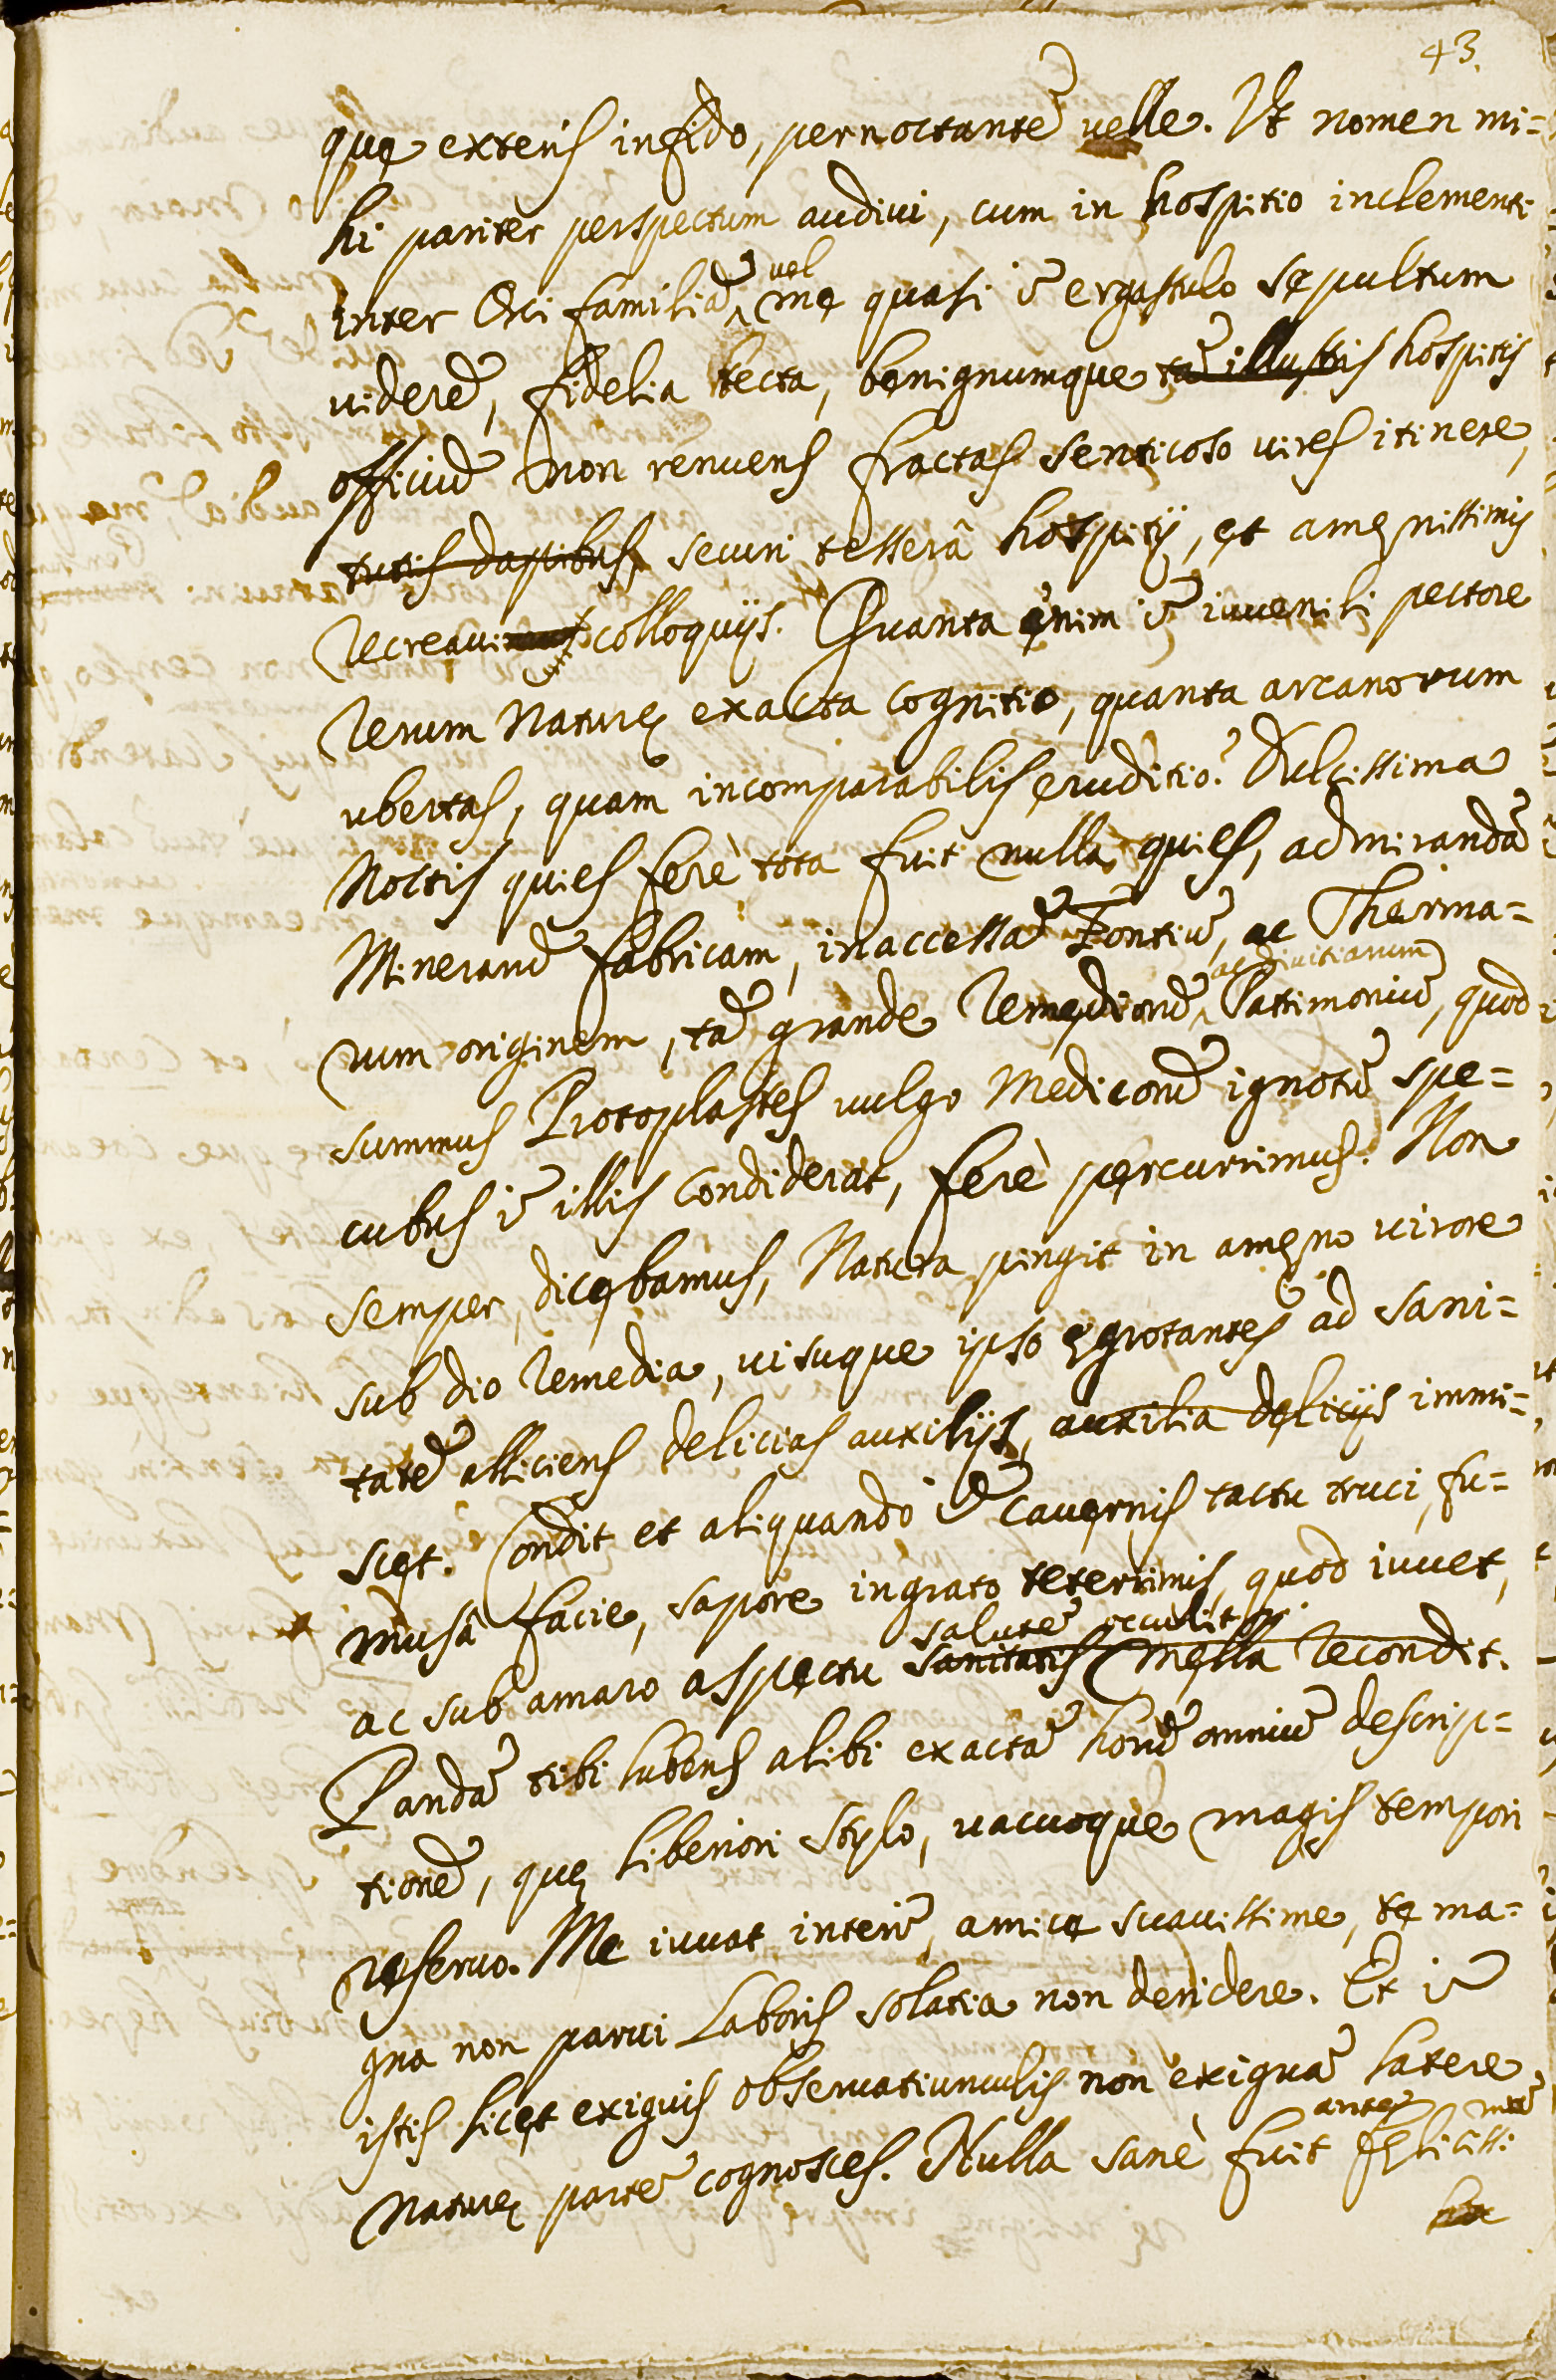 43.
quę exteris infido, pernoctantē velle. Vt nomen mi=
hi pariter perspectum audiui, cum in hospitio inclementi
inter Orci familiā, uel me quasi ī ergastulo sepultum
viderē, fidelia tecta, benignumque tā illustris hospitis
officiū non renuens fractas senticoso uires itinere,
tutis dapibus, securi tesserâ hospitij, et amęnissimis
recreaui colloquijs. Quanta enim ī iuuenili pectore
rerum Naturę exacta cognitio, quanta arcanorum
vbertas, quam incomparabilis eruditio? Dulcissima
Noctis quies ferè tota fuit nulla quies, admirandā
Minerarū fabricam, inaccessā Fontiū, ac Therma=
rum originem, tā grande Remediorū ac diuitiarum Patrimoniū, quod
summus Protoplastes vulgo Medicorū ignotū spe=
cubus ī illis condiderat, ferè percurrimus. Non
semper, dicebamus, Natura pingit in amęno uirore
sub dio remedia, uisuque ipso ęgrotantes ad sani=
tatē alliciens delicias auxilijs, auxilia delicijs immi=
scet. Condit et aliquando ī cauernis tactu truci, fu=
mosâ facie, sapore ingrato teterrimis, quod iuuet,
salutē occulit
ac sub amaro aspectu sanitatis mella recondit.
Pandā tibi lubens alibi exactā horū omniū descrip=
tionē, quę liberiori stylo, vacuoque magis tempori
reseruo. Me iuuat interī, amice suauissime, te ma=
gna non parui Laboris solatia non deridere. Et ī
istis licet exiguis obseruatiunculis non exiguā latere
Naturę partē cognosces. Nulla sanè fuit antea felicissi